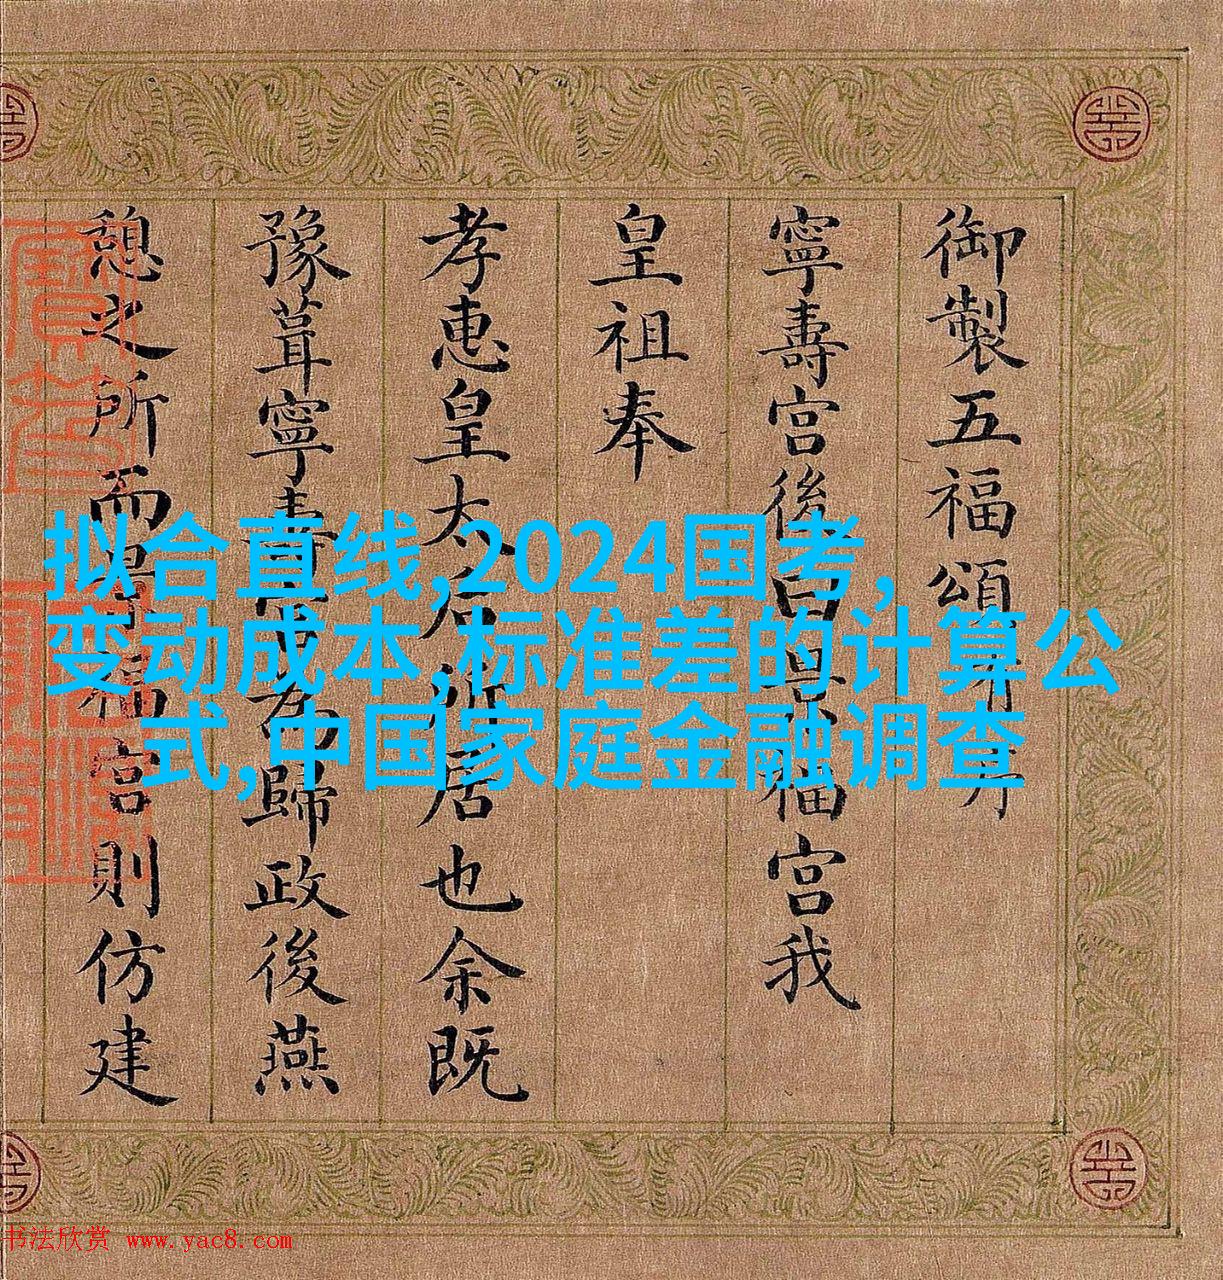 御製五福頌
寧壽宫後曰景福宫我
皇祖奉
孝惠皇太后所居也余既
豫葺寧壽宫為歸政後燕
憩之所而景福宫則仿建
拟合直线,2024国考,
变动成本,标准差的计算公
式,中国家庭金融调查
书法欣赏 www.yac8.com